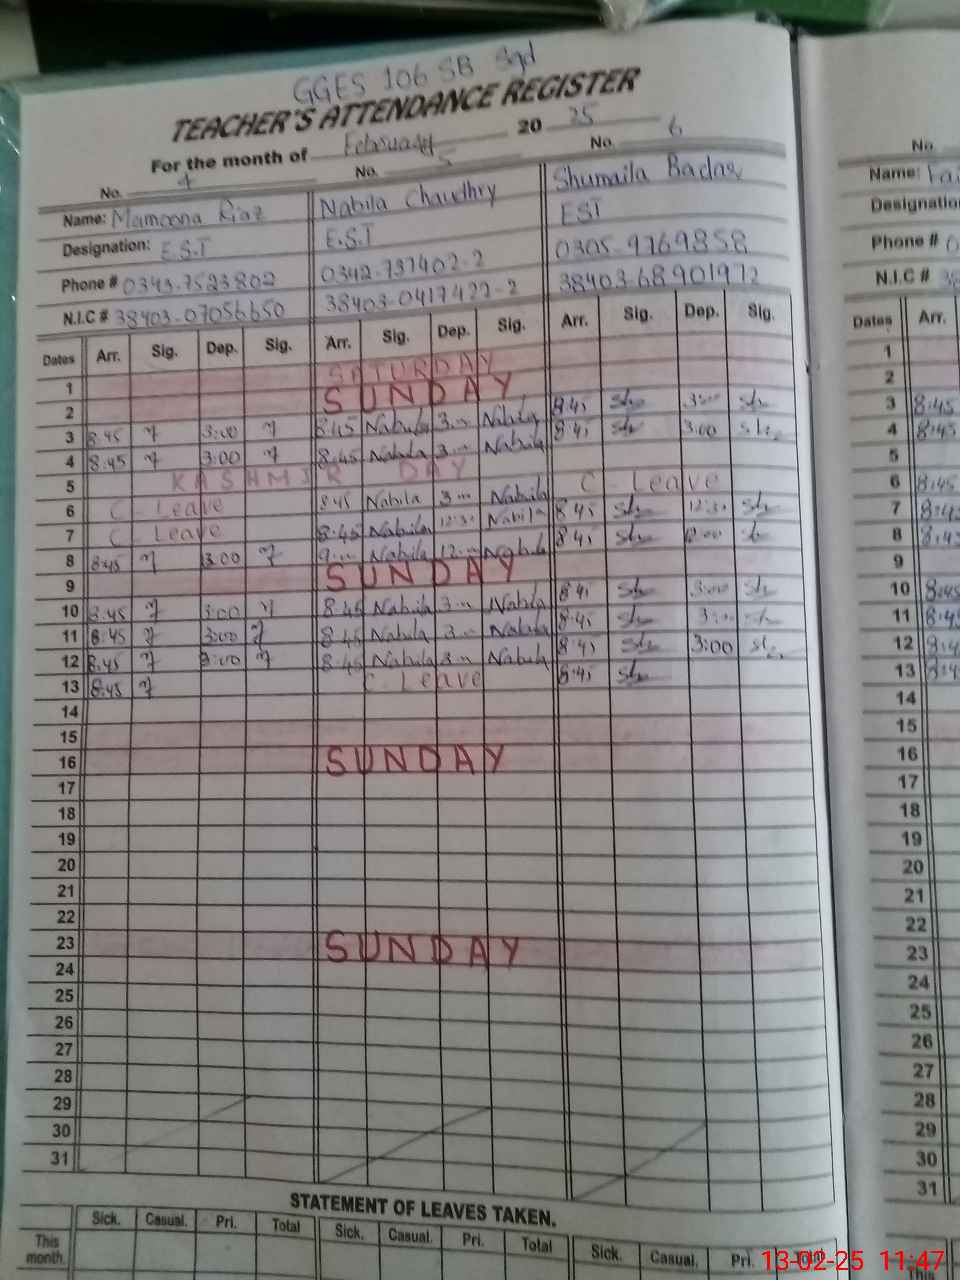 GGES 106 SB Sgd
TEACHER'S ATTENDANCE REGISTER
For the month of February 20 25
No. 4 No. 5 No. 6
Name: Mamoona Riaz Nabila Chaudhry Shumaila Badar
Designation: E.S.T E.S.T EST
Phone # 0343-7523802 0342-737402-2 0305-9769858
N.I.C # 38403-07056650 38403-0417422-2 38403-68901972
Dates Arr. Sig. Dep. Sig. Arr. Sig. Dep. Sig. Arr. Sig. Dep. Sig.
1 SATURDAY
2 SUNDAY
3 8:45 3:00 8:45 Nabila 3 Nabila 8:45 3:00
4 8:45 3:00 8:45 Nabila 3 Nabila 8:45 3:00
5 KASHMIR DAY
6 C - Leave 8:45 Nabila 3 Nabila C - Leave
7 C - Leave 8:45 Nabila 12:30 Nabila 8:45 12:30
8 8:45 3:00 Nabila 12 Nabila 8:45
9 SUNDAY
10 8:45 3:00 8:45 Nabila 3 Nabila 8:45 3:00
11 8:45 3:00 8:45 Nabila 3 Nabila 8:45 3:00
12 8:45 3:00 8:45 Nabila 3 Nabila 8:45 3:00
13 8:45 C - Leave 8:45
14
15
16 SUNDAY
17
18
19
20
21
22
23 SUNDAY
24
25
26
27
28
29
30
31
STATEMENT OF LEAVES TAKEN.
Sick. Casual. Pri. Total Sick. Casual. Pri. Total Sick. Casual. Pri. Total
This
month.
No.
Name:
Designation
Phone # 0
N.I.C #
Dates Arr.
1
2
3 8:45
4 8:45
5
6 8:45
7 8:4
8 8:4
9
10 8:45
11 8:4
12 8:4
13 8:4
14
15
16
17
18
19
20
21
22
23
24
25
26
27
28
29
30
31
13-02-25 11:47